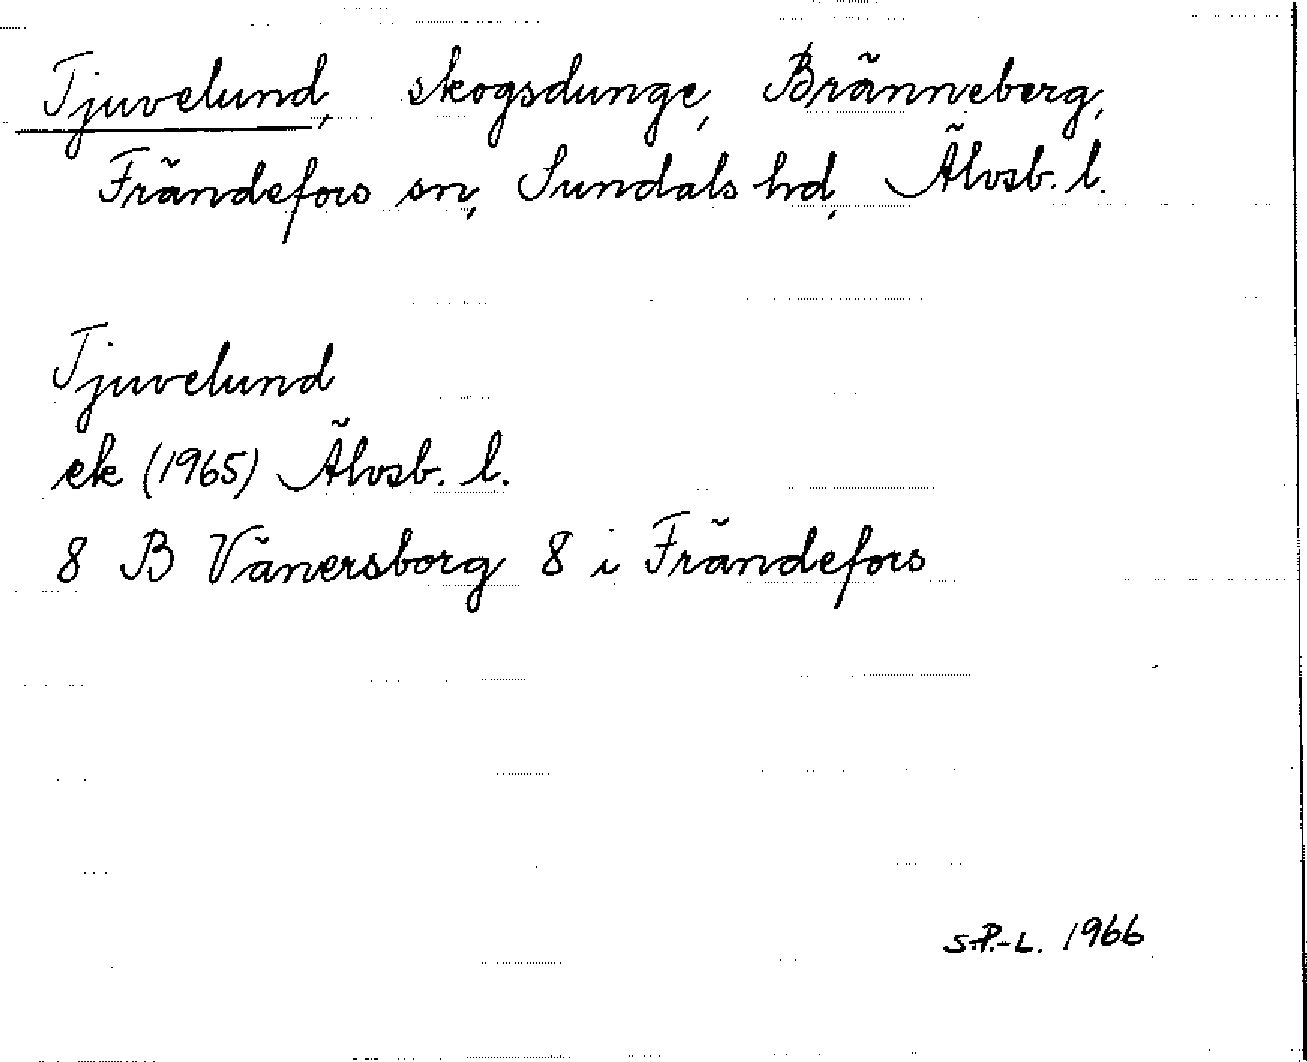 Tjuvelund, skogsdunge, Bränneberg,
Frändefors sn, Sundals hd, Älvsb. l.
Tjuvelund
ek (1965) Älvsb. l.
8 B Vänersborg 8 i Frändefors
S.P.-L. 1966